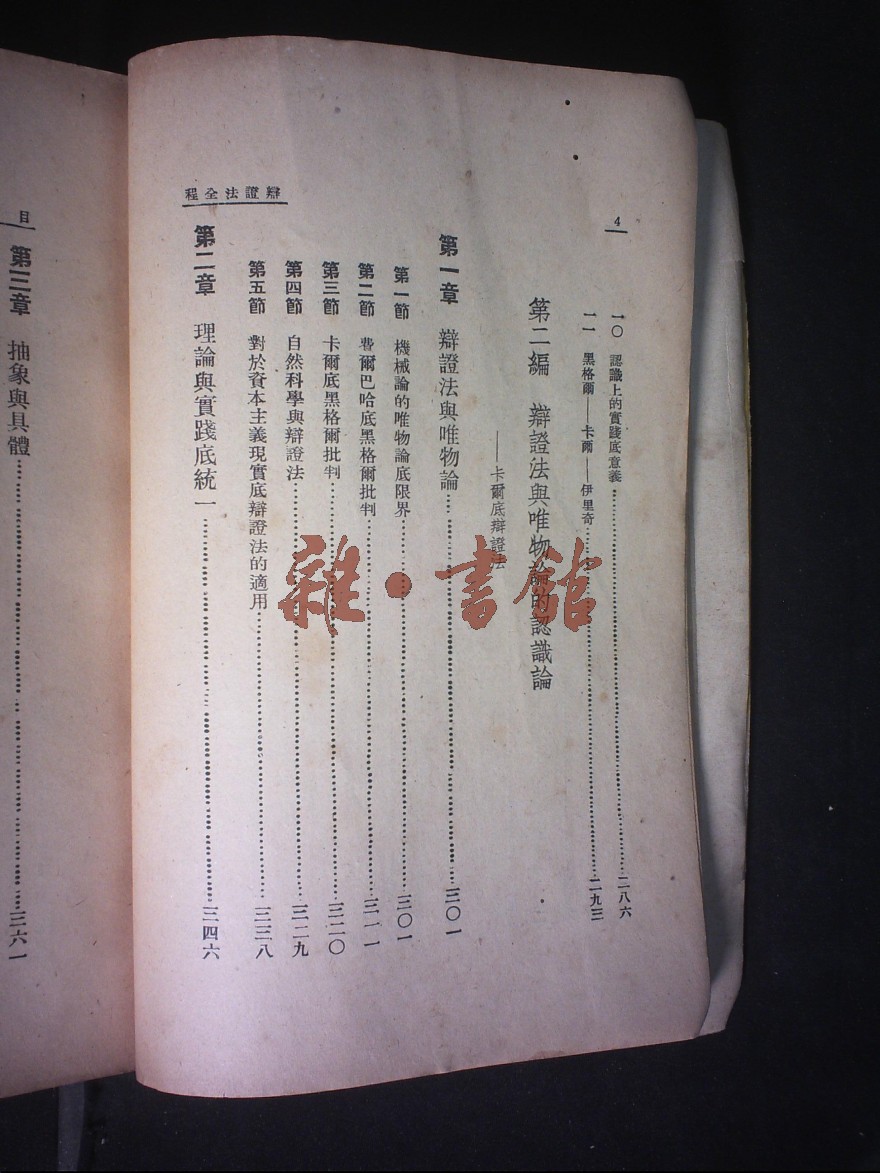 辯證法全程
4
一〇 認識上的實踐底意義……二八六
一一 黑格爾——卡爾——伊里奇……二九三
第二編 辯證法與唯物論的認識論
——卡爾底辯證法
第一章 辯證法與唯物論……三〇一
第一節 機械論的唯物論底限界……三〇一
第二節 費爾巴哈底黑格爾批判……三一一
第三節 卡爾底黑格爾批判……三二〇
第四節 自然科學與辯證法……三二九
第五節 對於資本主義現實底辯證法的適用……三三八
第二章 理論與實踐底統一……三四六
目
第三章 抽象與具體……三六一
雜·書館